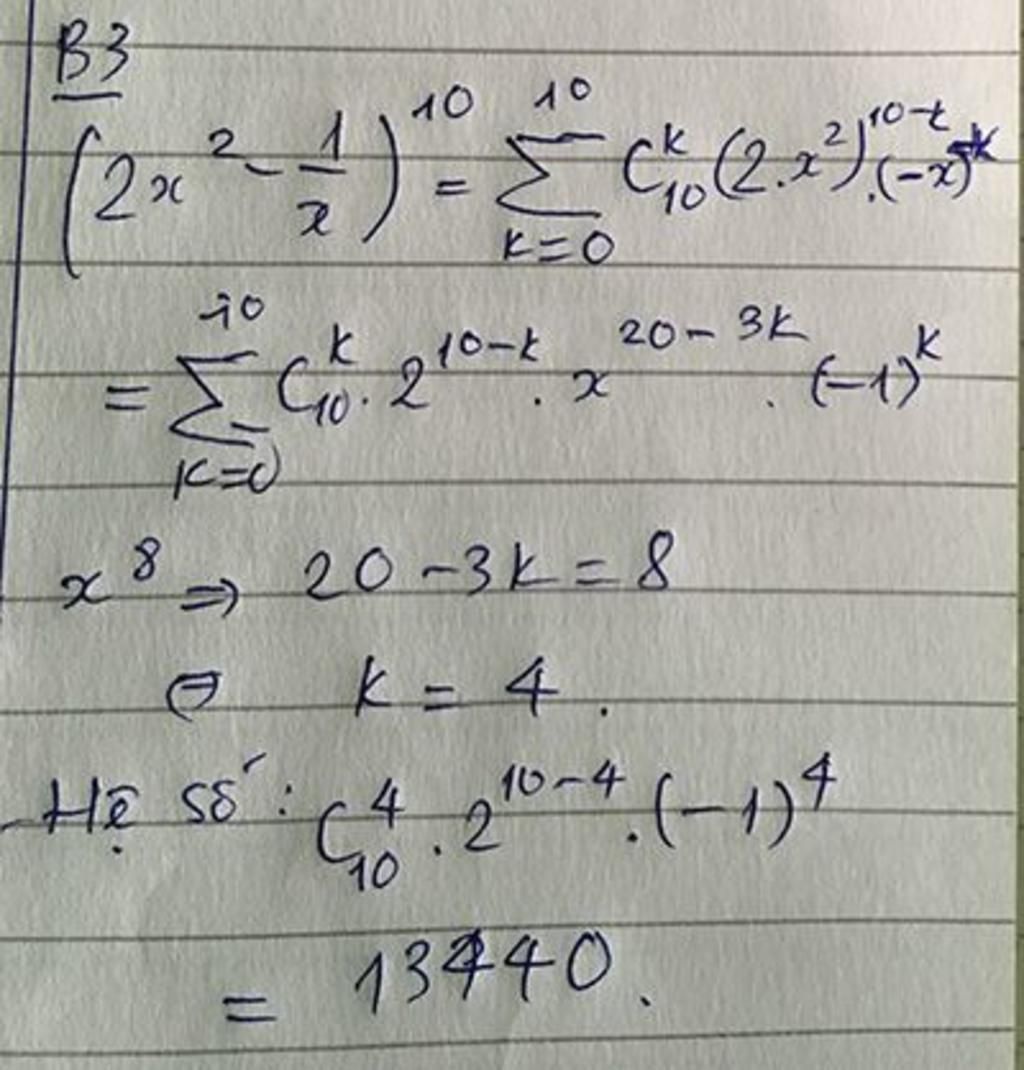 B3
(2x² - 1/x)¹⁰ = ∑_{k=0}^{10} C_{10}^{k} (2.x²)^{10-k} . (-x)^{-k}
= ∑_{k=0}^{10} C_{10}^{k} . 2^{10-k} . x^{20-3k} . (-1)^k
x⁸ ⇒ 20 - 3k = 8
⇔ k = 4 .
- Hệ số : C_{10}^{4} . 2^{10-4} . (-1)⁴
= 13440 .